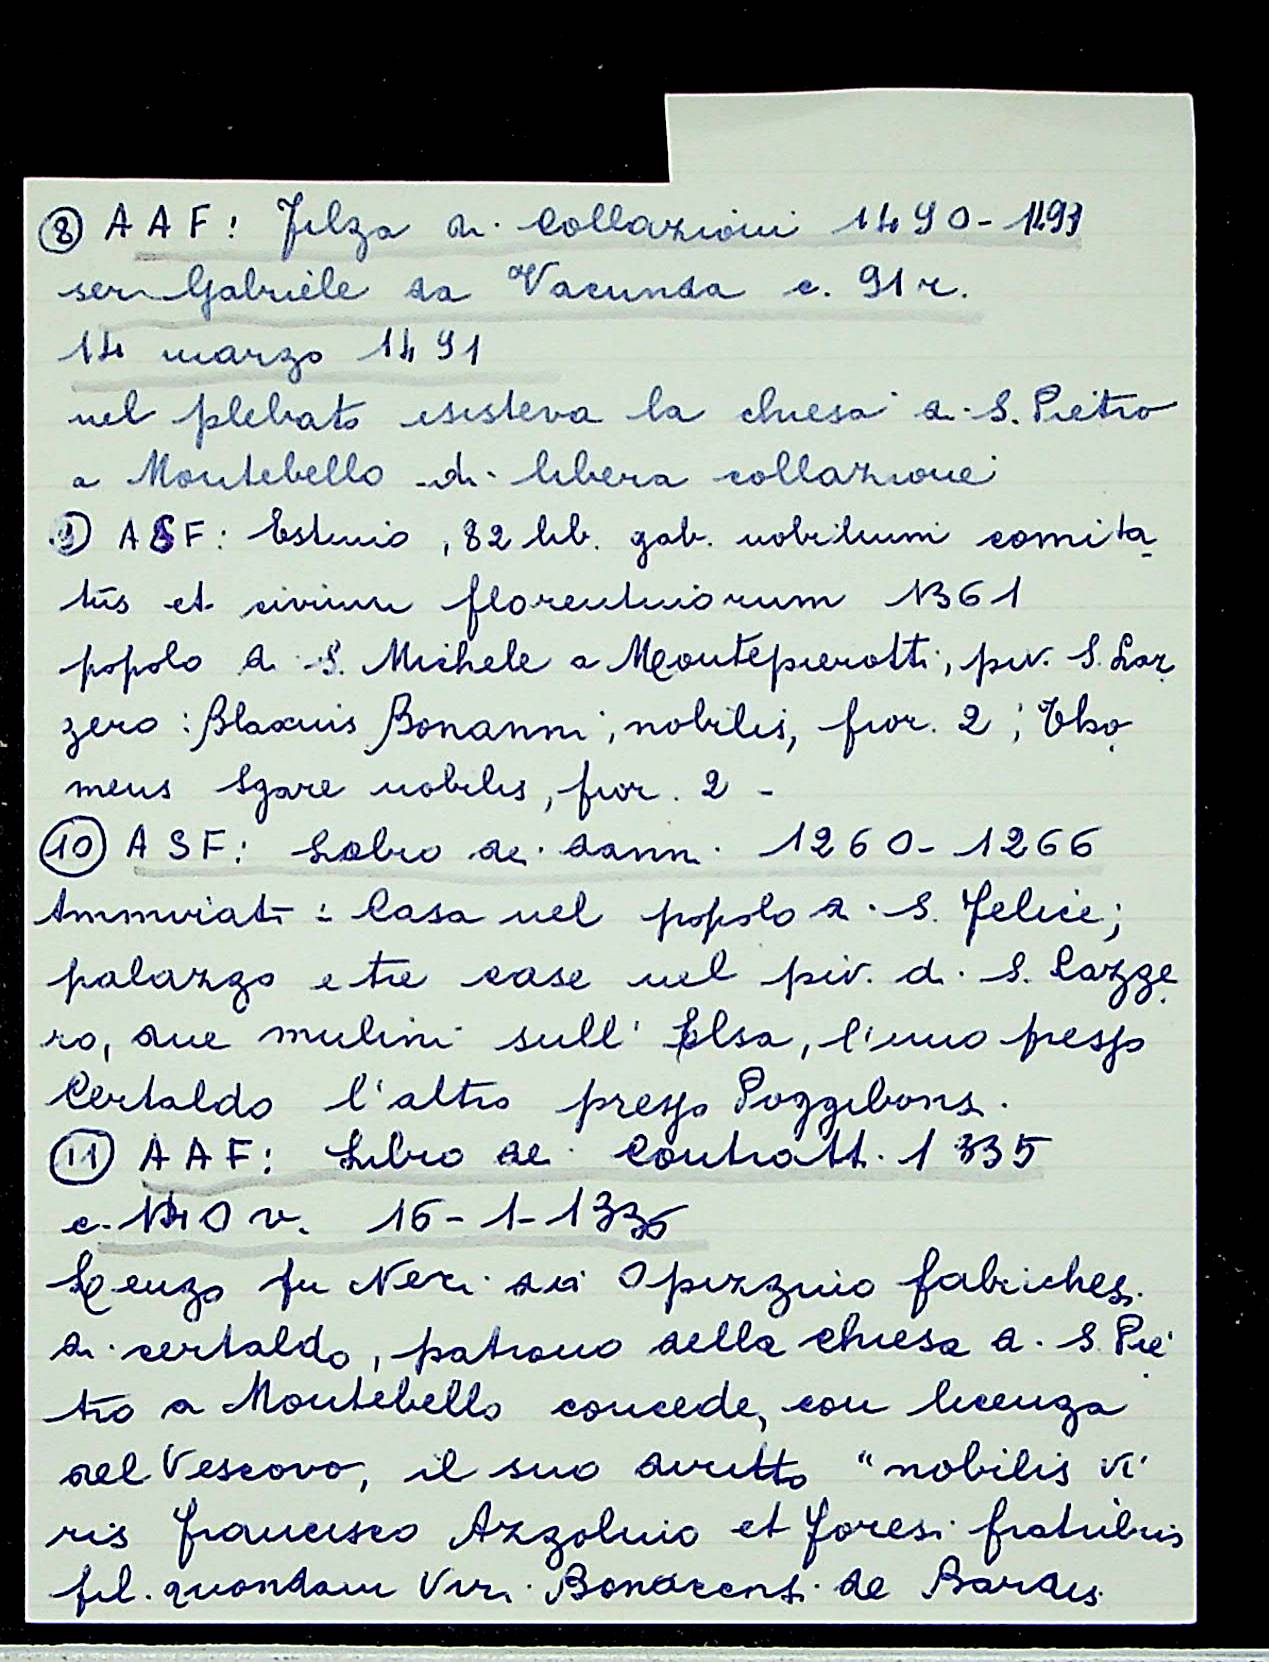 ⑧ AAF: Filza di collazioni 1490-1493
ser Gabriele da Vacunda c. 91r.
14 marzo 1491
nel plebato esisteva la chiesa di S. Pietro
a Montebello di libera collazione
⑨ ASF: Estimio, 82 lib. gab. nobilium comita-
tus et civium florentinorum 1361
popolo di S. Michele a Montepierotti, piv. S. Laz
zero: Blaxius Bonanni, nobilis, fior. 2; Tho
meus Sgare nobilis, fior. 2 -
⑩ ASF: Libro dei dann. 1260-1266
Ammirati: Casa nel popolo di S. Felice;
palazzo e tre case nel piv. di S. Lazze
ro, due mulini sull'Elsa, l'uno presso
Certaldo l'altro presso Poggibonsi.
⑪ AAF: Libro dei Contratti 1335
c. v. 16-1-1336
Renzo fu Neri di Opizzino fabriches.
di certaldo, patrono della chiesa di S. Pie
tro a Montebello concede, con licenza
del Vescovo, il suo diritto "nobilis vi
ris Francisco Azzolino et foresi fratribus
fil. quondam Viri de Bardis